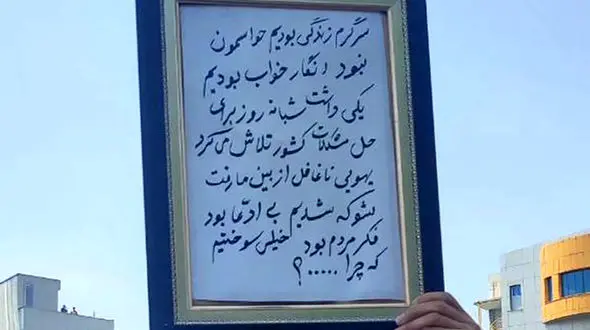 سرگرم زندگی بودیم حواسمون
نبود انگار خواب بودیم
یکی داشت شبانه روز برای
حل مشکلات کشور تلاش می‌کرد
یهویی ناغافل از بین ما رفت
شوکه شدیم بی ادّعا بود
فکر مردم بود خیلی سوختیم
که چرا ..... ؟